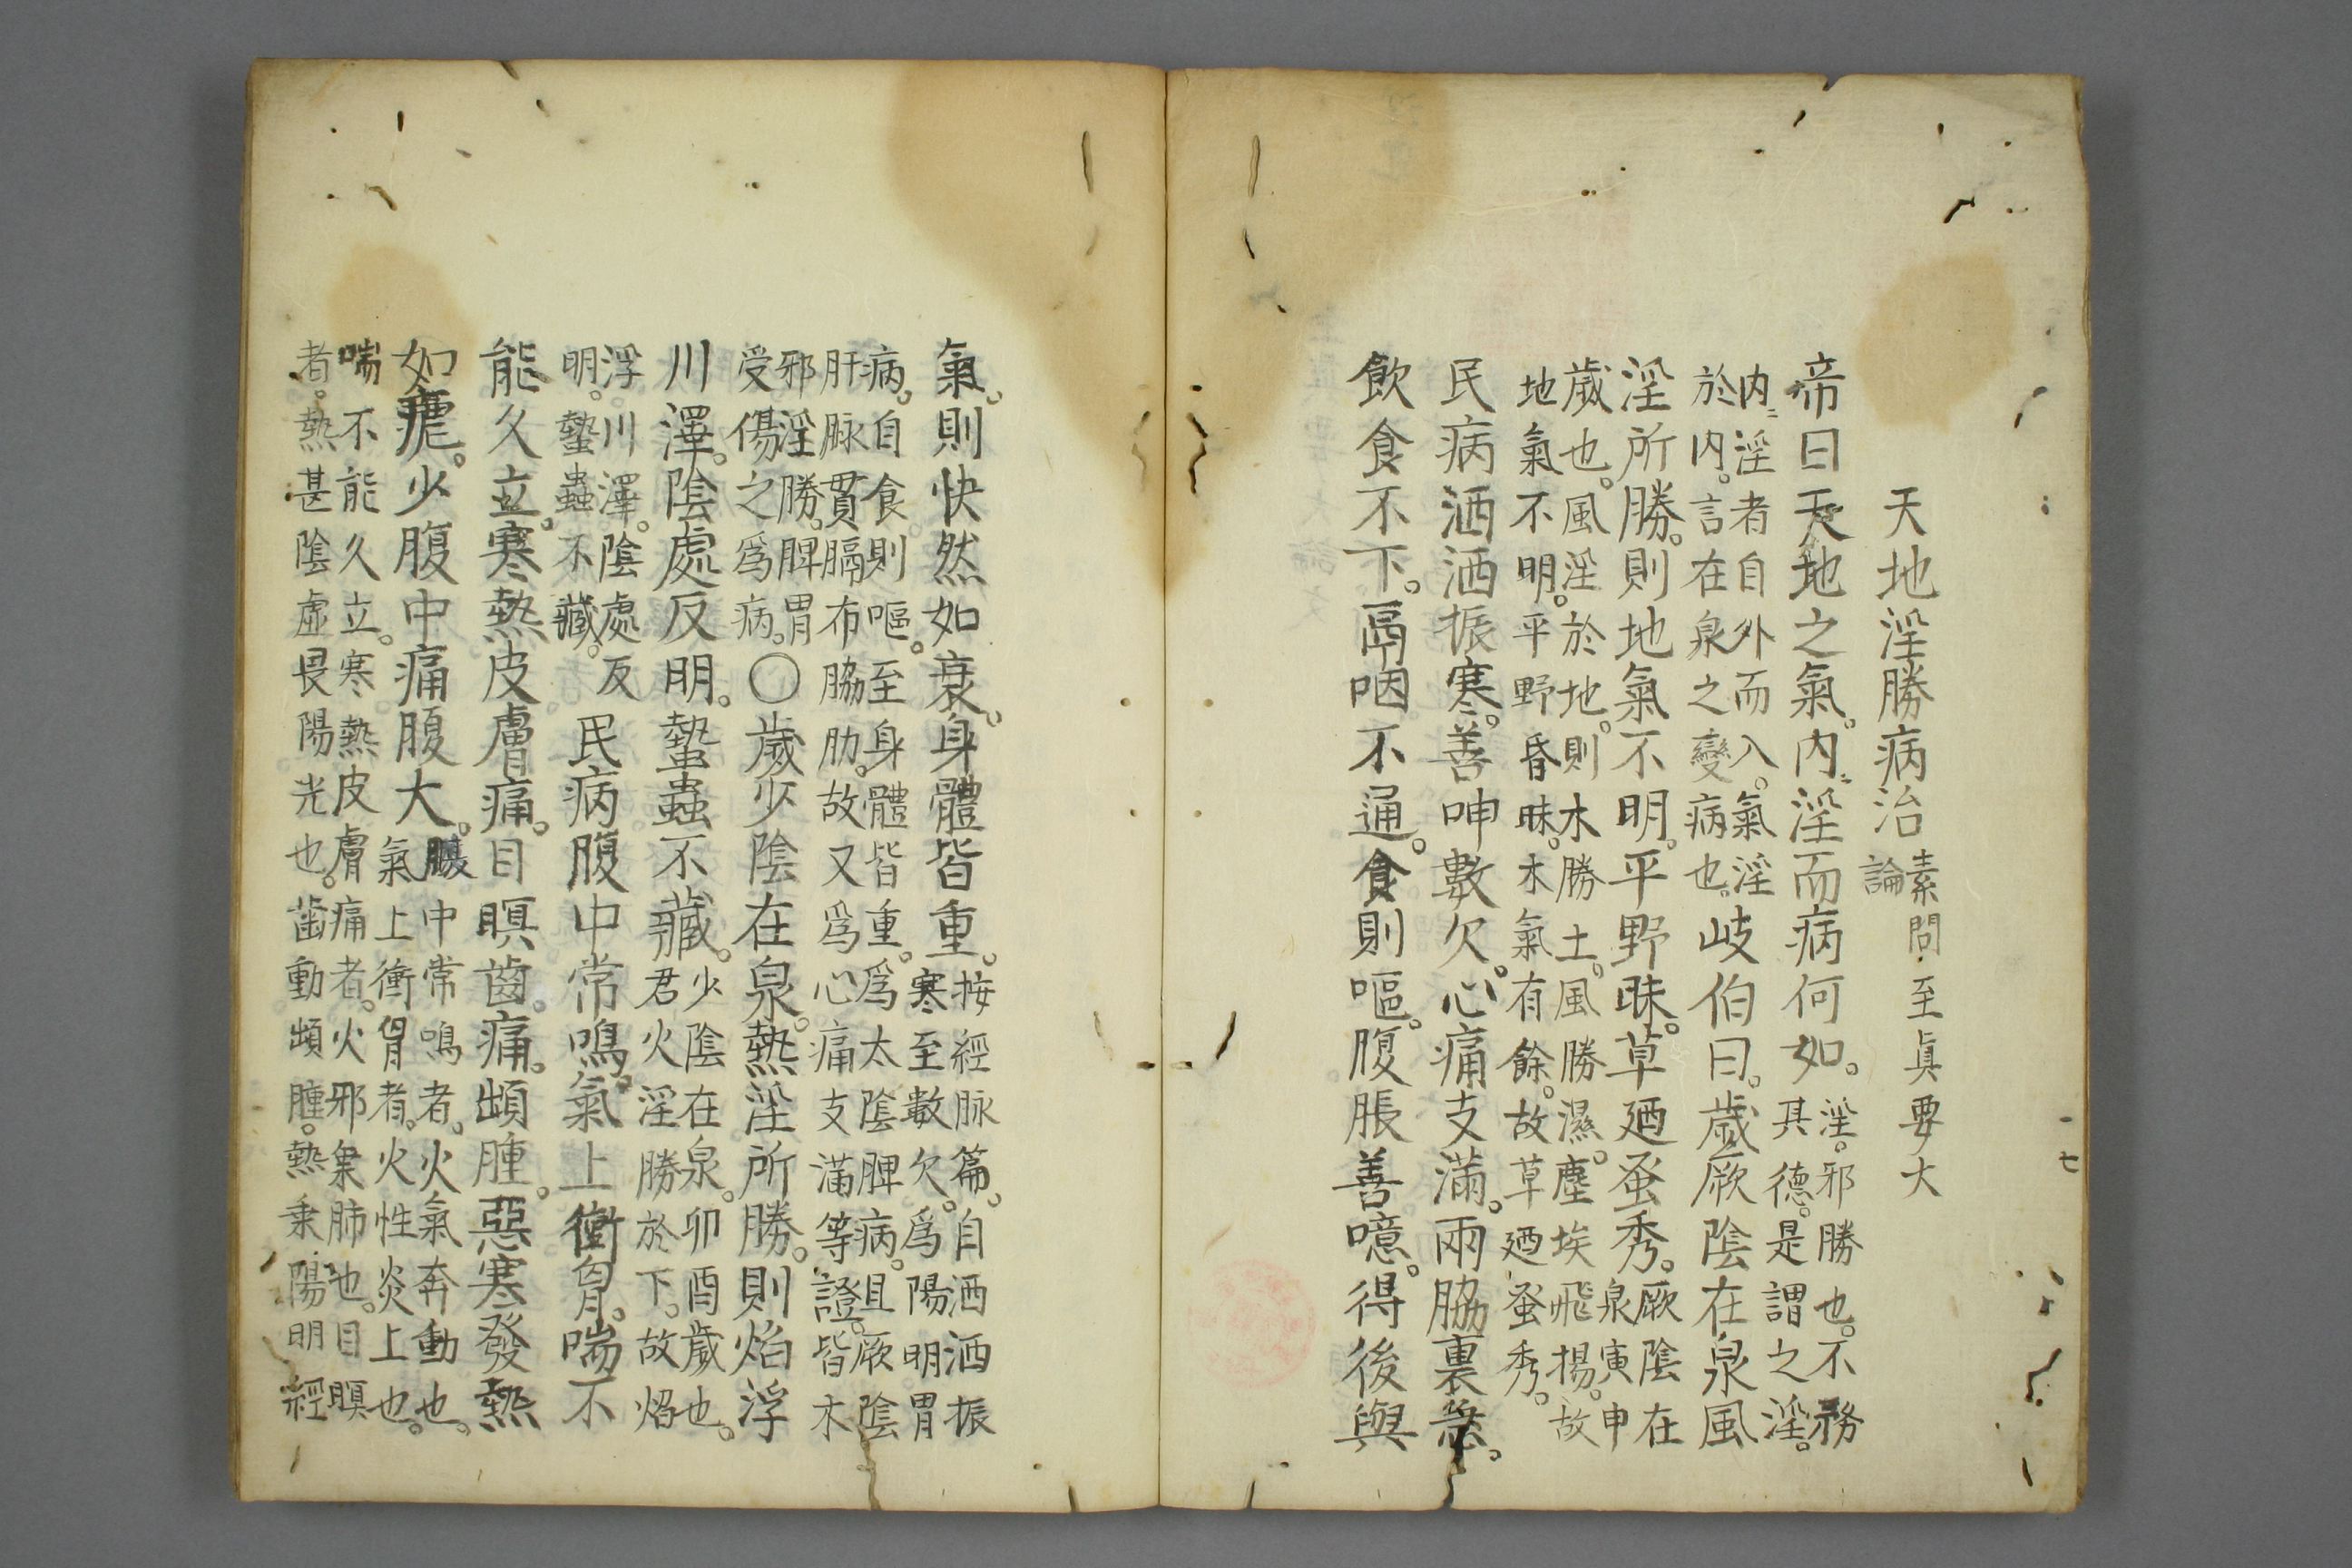 天地淫勝病治 素問·至眞要大論
帝曰天地之氣。内淫而病何如。淫。邪勝也。不務其德。是謂之淫。
内淫者自外而入。氣淫於内。言在泉之變病也。岐伯曰。歲厥陰在泉風
淫所勝。則地氣不明。平野昧。草廼蚤秀。厥陰在泉寅申
歲也。風淫於地。則木勝土。風勝濕。塵埃飛揚。故地氣不明。平野昏昧。木氣有餘。故草廼蚤秀。
民病洒洒振寒。善呻數欠。心痛支滿。兩脇裏急。
飲食不下。鬲咽不通。食則嘔。腹脹善噫。得後與
氣。則快然如衰。身體皆重。按經脉篇。自洒洒振寒至數欠。爲陽明胃
病。自食則嘔。至身體皆重。爲太陰脾病。且厥陰肝脉貫膈布脇肋。故又爲心痛支滿等證。皆木
邪淫勝。脾胃受傷之爲病。〇歲少陰在泉。熱淫所勝。則焰浮
川澤。陰處反明。蟄蟲不藏。少陰在泉。卯酉歲也。君火淫勝於下。故焰
浮川澤。陰處反明。蟄蟲不藏。民病腹中常鳴。氣上衝胷。喘不
能久立。寒熱皮膚痛。目瞑齒。痛。䪼腫。惡寒發熱
如瘧。少腹中痛腹大。腹中常鳴者。火氣奔動也。氣上衝胷者。火性炎上也。
喘不能久立。寒熱皮膚痛者。火邪乗肺也。目瞑者。熱甚陰虛畏陽光也。齒動䪼腫。熱乗陽明經
七